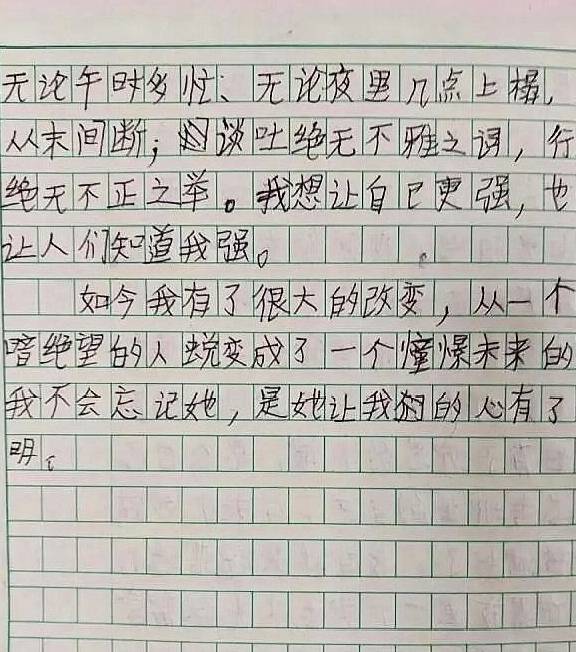 无论午时多忙、无论夜里几点上榻,
从末间断;谈吐绝无不雅之词,行
绝无不正之举。我想让自己更强,也
让人们知道我强。
如今我有了很大的改变,从一个
暗绝望的人蜕变成了一个憧憬未来的
我不会忘记她,是她让我的心有了
明。